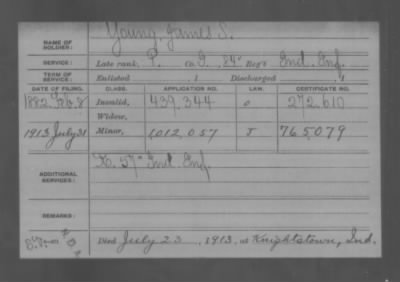 NAME OF SOLDIER: Young, James S.
SERVICE: Late rank, P. Co. I, 84" Reg't Ind. Inf.
TERM OF SERVICE: Enlisted , 1 Discharged , 1
DATE OF FILING. CLASS. APPLICATION NO. LAW. CERTIFICATE NO.
1882 Feb. 8 Invalid, 439.344 272.610
Widow,
1913 July 31 Minor, 1012.057 765079
ADDITIONAL SERVICES: 57" Ind. Inf.
REMARKS:
Died July 23, 1913, at Knightstown, Ind.